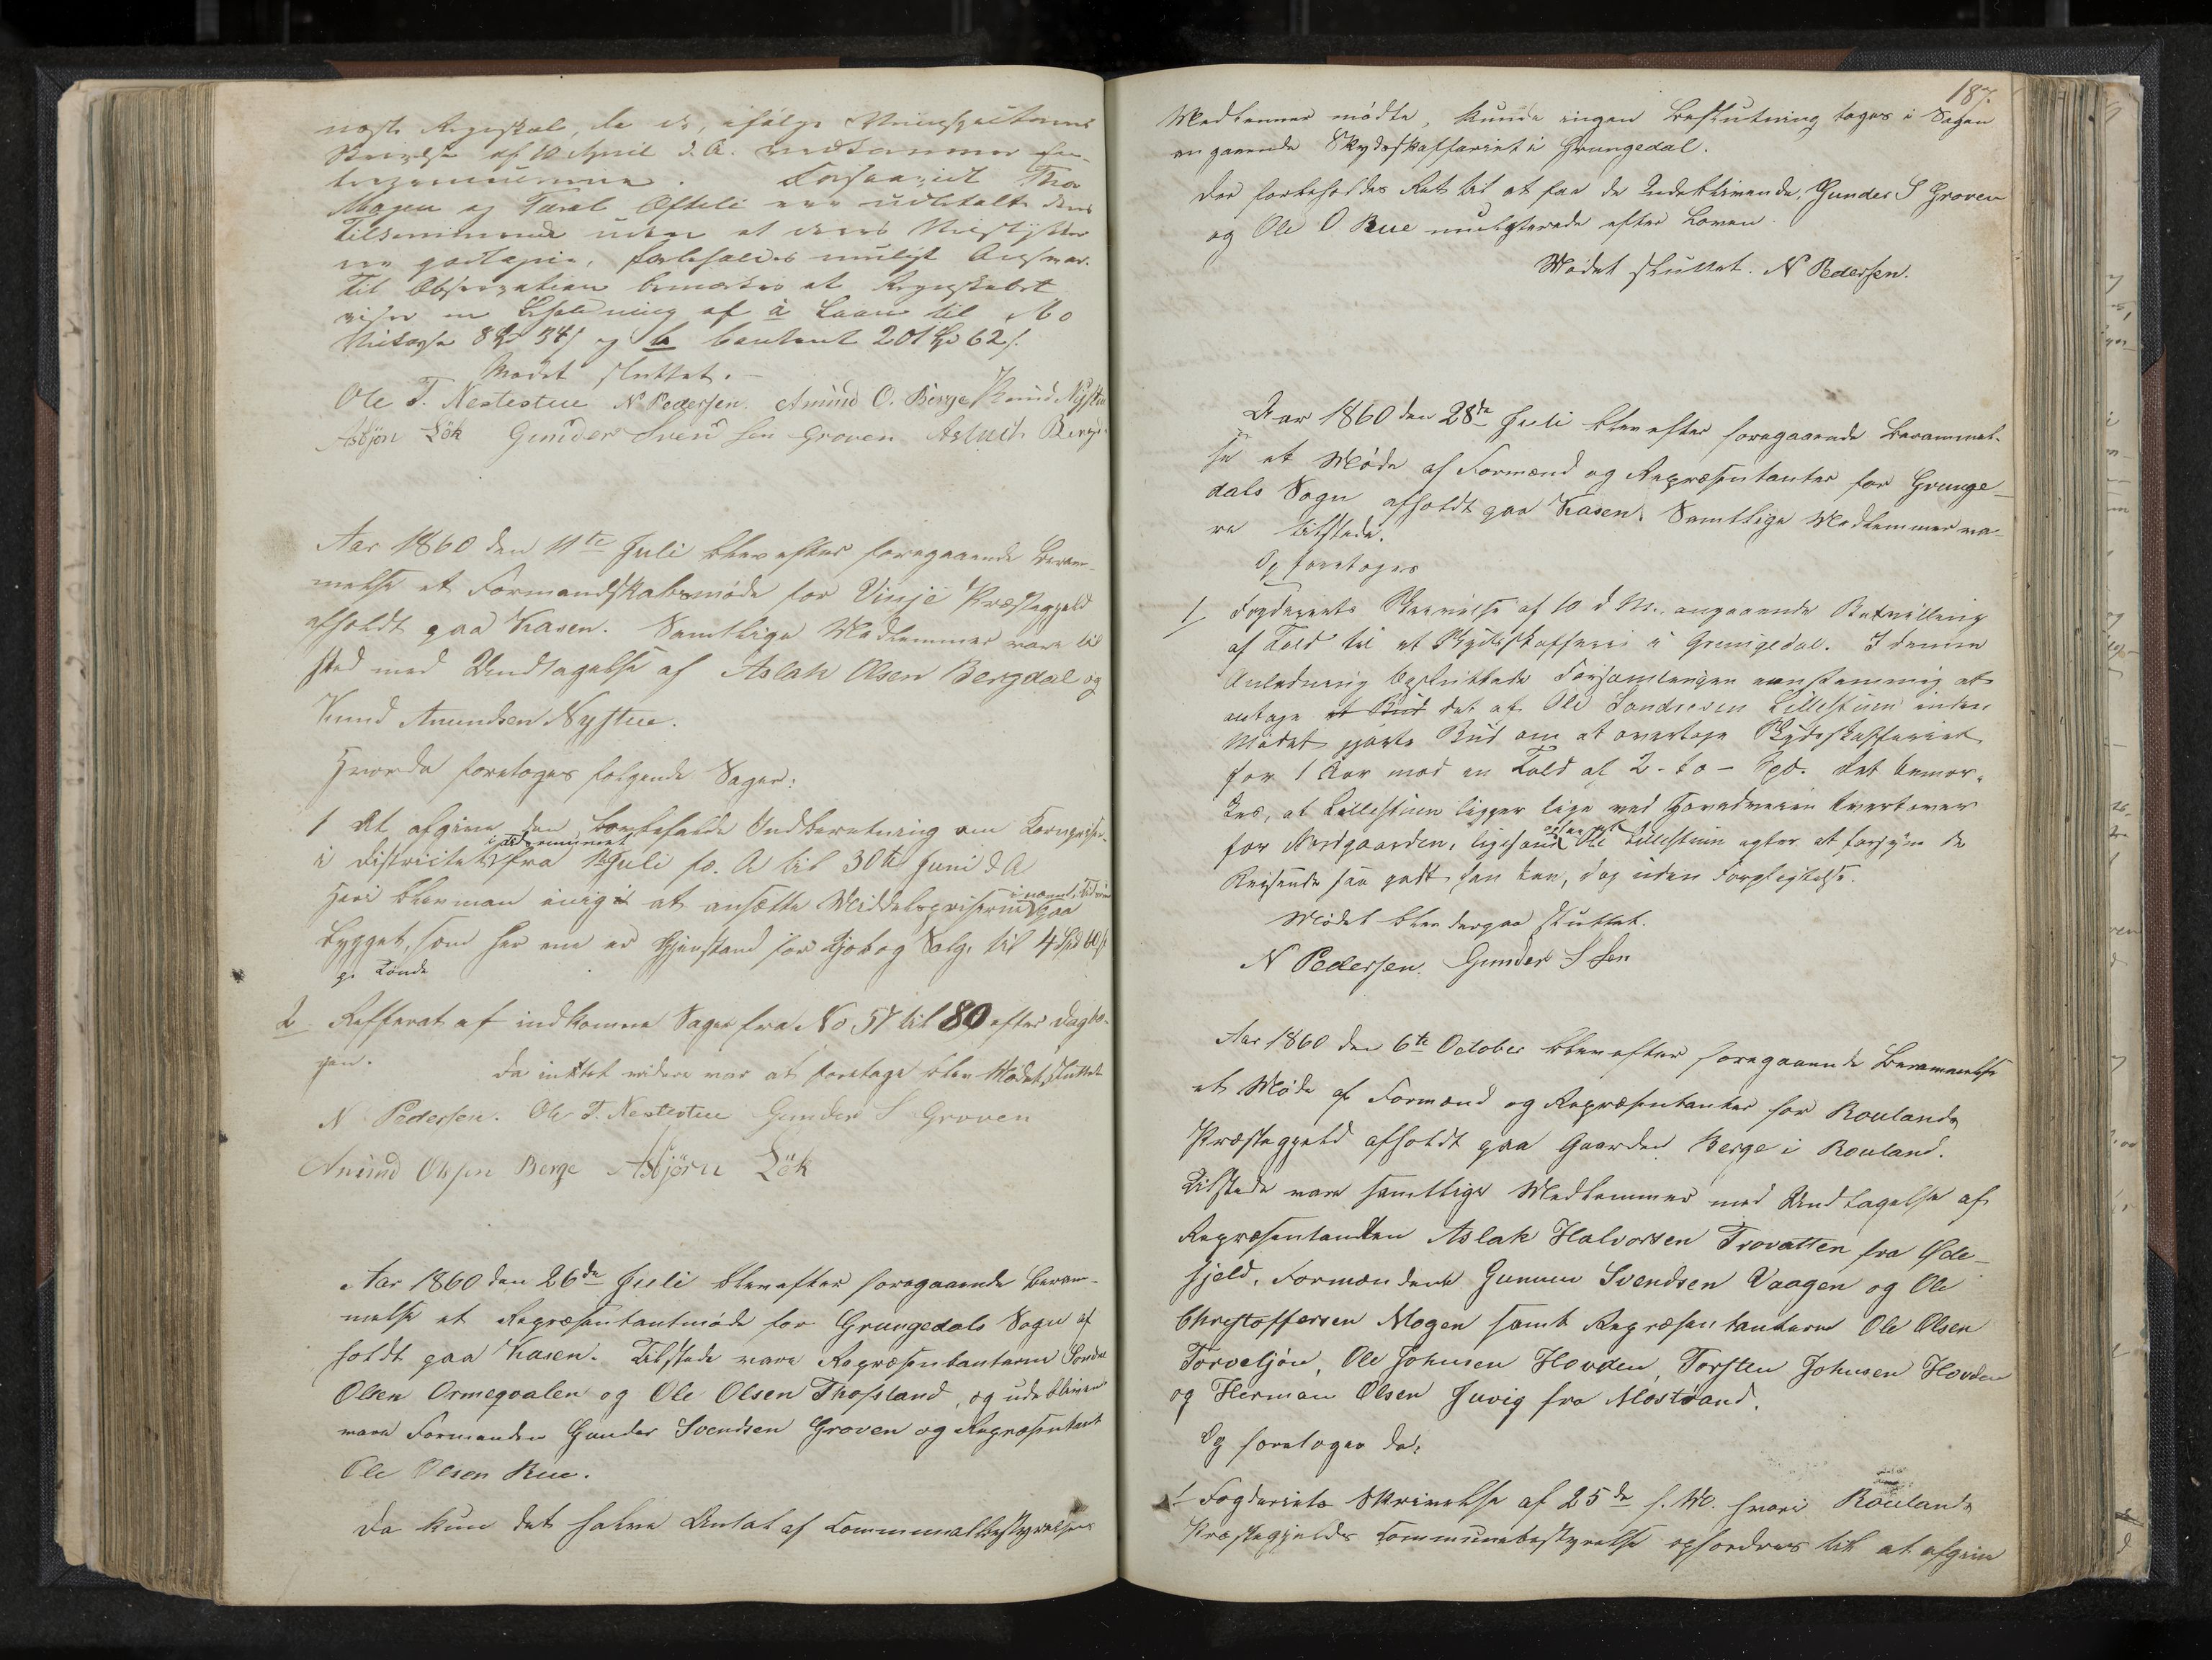 næste Regnskab, da de, ifølge
Skrivelse af 10 April d. A. vedkommer
Forsaavidt Thor
Mogen og Taral Ofteli ere udbetalte deres
Tilkommende uden at deres
ere forbeholdes muligt Ansvar.
Til Observation bemærkes at Regnskabet
viser en Beholdning af a Laan til Mo
8 Spd 54 s og b contant 201 Spd 62 s.
Mødet sluttet.
Ole T. Nestestue N Pedersen. Amund O. Berge Knud Nystue
Asbjøn Løk Gunder Svensen Groven Aslach Bergd
Aar 1860 den 11te Juli blev efter foregaaende Beram-
melse et Formandskabsmøde for Vinje Præstegjeld
afholdt paa Kasen. Samtlige Medlemmer vare til
sted med Undtagelse af Aslak Olsen Bergdal og
Knud Amundsen Nystue.
Hvorda foretoges følgende Sager:
1 At afgive den befalede Indberetning om Kornpriser
i Districtet i Tidsrummet fra 1 Juli f. A til 30te Juni d A
Heri blev man enig i at ansætte Middelpriserne i nævnte Tidsrum paa
Bygget, som her ene er Gjenstand for Kjøb og Salg, til 4 Spd 60 s
pr Tønde
2 Refferat af indkomne Sager fra No 57 til 80 efter Dagbo-
gen.
Da intet videre var at foretage blev Mødet sluttet
N Pedersen. Ole T. Nestestue Gunder S Groven
Amund Olsen Berge Asbjørn Løk
Aar 1860 den 26de Juli blev efter foregaaende Beram-
melse et Repræsentantmøde for Grungedals Sogn af
holdt paa Kasen. Tilstede vare Repræsentanterne Sondre
Olsen Ormeqvalen og Ole Olsen Thofsland, og udeblivene
vare Formanden Gunder Svendsen Groven og Repræsentant
Ole Olsen Rue.
Da kun det halve Antal af Communalbestyrelsens
187.
Medlemmer mødte, kunde ingen Beslutning tages i Sagen
angaaende Skydsskafferiet i Grungedal.
Der forbeholdes Ret til at faa de Udeblivende, Gunder S Groven
og Ole O. Rue mulcterede efter Loven
Mødet sluttet. N Pedersen.
Aar 1860 den 28de Juli blev efter foregaaende Berammel-
se et Møde af Formænd og Repræsentanter for Grunge-
dals Sogn afholdt paa Kasen. Samtlige Medlemmer va-
re tilstede.
Og foretoges
1/ Fogderiets Skrivelse af 10 d M. angaaende Bevilling
af Told til et Skydsskafferi i Grungedal. I denne
Anledning besluttede Forsamlingen eenstemmig at
antage et Bud det af Ole Sondresen Lillestuen under
Mødet gjorte Bud om at overtage Skydsskafferiet
for 1 Aar mod en Told af 2 - to - Spd. Det bemær-
kes, at Lillestuen ligger lige ved Hovedveien tvert over
for Nordgaarden, ligesom Ole Lillestuen agter at forsyne de
Reisende saa godt han kan, dog uden Forpligtelse.
Mødet blev derpaa sluttet.
N Pedersen. Gunder S Sen
Aar 1860 den 6te October blev efter foregaaende Berammelse
et Møde af Formænd og Repræsentanter for Roulands
Præstegjeld afholdt paa Gaarden Berge i Rouland.
Tilstede vare samtlige Medlemmer med Undtagelse af
Repræsentanten Aslak Halvorsen Trovatten fra Øde-
fjeld, Formændene Gunnu Svendsen Vaagen og Ole
Christoffersen Mogen samt Repræsentanterne Ole Olsen
Torveljøn, Ole Johnsen Hovden, Torsten Johnsen Hovden
og Herman Olsen Juvig fra Mostrand.
Og foretoges da:
1 Fogderiets Skrivelse af 25de f. M. hvori Roulands
Præstegjelds Communebestyrelse opfordres til at afgive